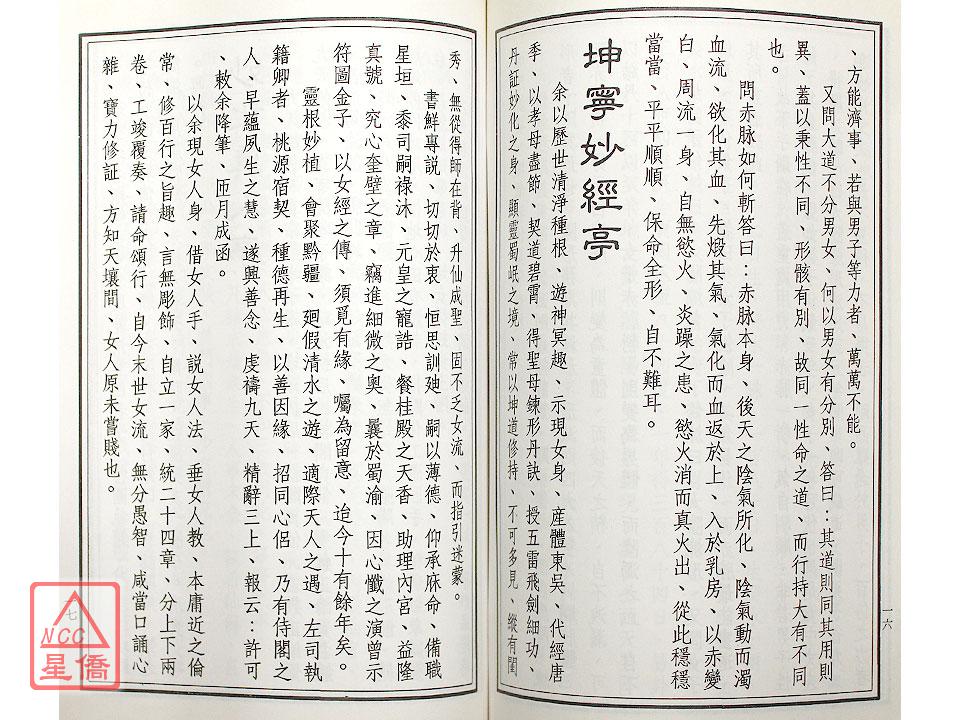 、方能濟事、若與男子等力者、萬萬不能。
又問大道不分男女、何以男女有分別、答曰：其道則同其用則
異、蓋以秉性不同、形骸有別、故同一性命之道、而行持大有不同
也。
問赤脉如何斬答曰：赤脉本身、後天之陰氣所化、陰氣動而濁
血流、欲化其血、先煅其氣、氣化而血返於上、入於乳房、以赤變
白、周流一身、自無慾火、炎躁之患、慾火消而真火出、從此穩穩
當當、平平順順、保命全形、自不難耳。
坤寧妙經亭
余以歷世清淨種根、遊神冥趣、示現女身、産體東吳、代經唐
季、以孝母盡節、契道碧霄、得聖母鍊形丹訣、授五雷飛劍細功、
丹証妙化之身、顯靈蜀岷之境、常以坤道修持、不可多見、縱有閨
一六
秀、無從得師在背、升仙成聖、固不乏女流、而指引迷蒙。
書鮮專説、切切於衷、恒思訓廸、嗣以薄德、仰承庥命、備職
星垣、忝司嗣祿沐、元皇之寵誥、餐桂殿之天香、助理內宮、益隆
真號、究心奎壁之章、竊進細微之奧、曩於蜀渝、因心懺之演曾示
符圖金子、以女經之傳、須覓有緣、囑為留意、迨今十有餘年矣。
靈根妙植、會聚黔疆、廻假清水之遊、適際天人之遇、左司執
籍卿者、桃源宿契、種德再生、以善因緣、招同心侶、乃有侍閣之
人、早蘊夙生之慧、遂興善念、虔禱九天、精辭三上、報云：許可
、敕余降筆、匝月成函。
以余現女人身、借女人手、説女人法、垂女人教、本庸近之倫
常、修百行之旨趣、言無彫飾、自立一家、統二十四章、分上下兩
卷、工竣覆奏、請命頌行、自今末世女流、無分愚智、咸當口誦心
雜、寶力修証、方知天壤間、女人原未嘗賤也。
七
NCC
星僑